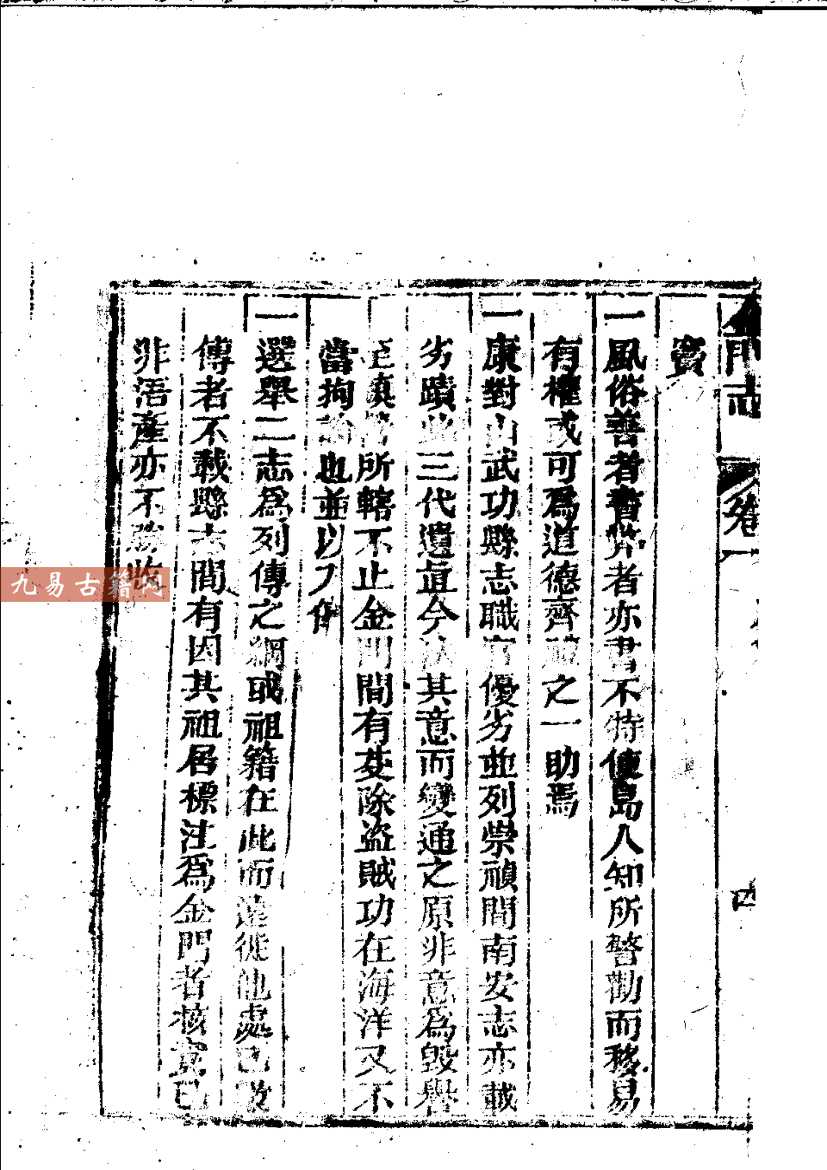 金門志 卷一 四
實
一風俗善者書弊者亦書不特使島人知所警勸而移易
有權或可爲道德齊禮之一助焉
一康對山武功縣志職官優劣並列崇禎間南安志亦載
劣蹟此三代遺直今法其意而變通之原非意爲毀譽
至鎮營所轄不止金門間有芟除盜賊功在海洋又不
當拘論也並以刀
一選舉二志爲列傳之綱或祖籍在此而遠徙他處已散
傳者不載縣志間有因其祖居標注爲金門者核實已
非浯產亦不濫收
九易古籍网